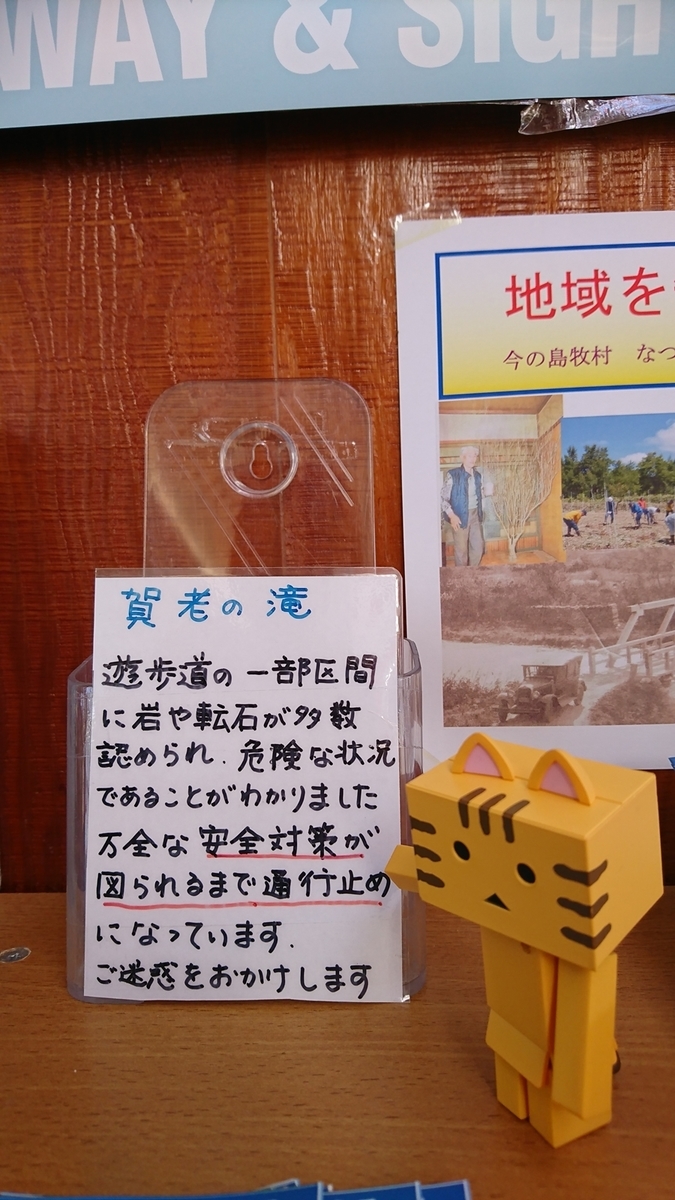 WAY & SIGH
地域を
今の島牧村 なつ
賀老の滝
遊歩道の一部区間
に岩や転石が多数
認められ、危険な状況
であることがわかりました
万全な安全対策が
図られるまで通行止め
になっています.
ご迷惑をおかけします